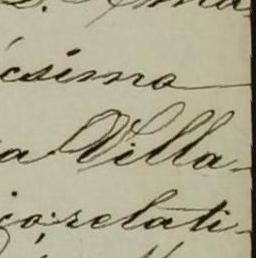 ésima
a Villa-
ço relati-